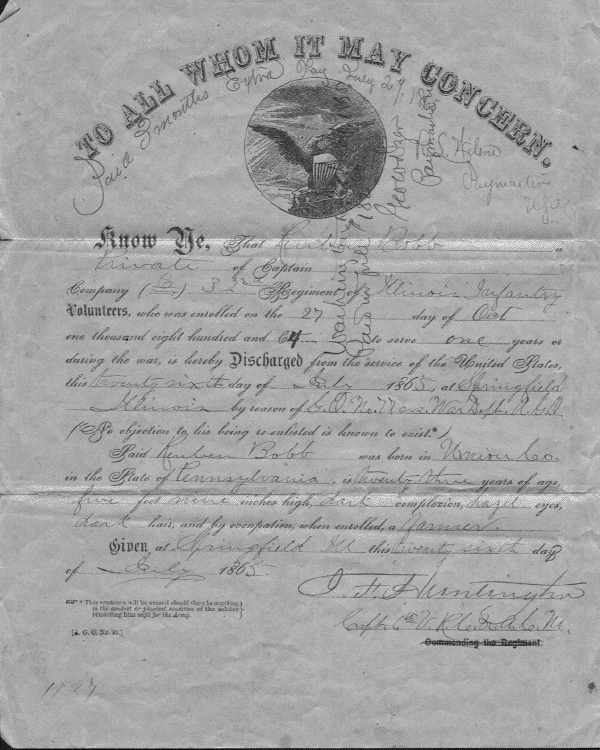 TO ALL WHOM IT MAY CONCERN.
Paid 3 months Extra Pay July 27, 18
Paymaster
Know Ye, That Reuben Bobb a
Private of Captain
Company (C,) 33rd Regiment of Illinois Infantry
Volunteers, who was enrolled on the 27 day of Oct
one thousand eight hundred and 64 to serve one years or
during the war, is hereby Discharged from the service of the United States,
this twenty sixth day of July 1865, at Springfield
Illinois by reason of G.O. No. 77 War Dept. A.G.O
(No objection to his being re-enlisted is known to exist.*)
Said Reuben Bobb was born in Union Co.
in the State of Pennsylvania, is twenty three years of age,
five feet nine inches high, dark complexion, hazel eyes,
dark hair, and by occupation, when enrolled, a farmer
Given at Springfield Ill this twenty sixth day
of July 1865.
Huntington
Capt.
Commanding the Regiment.
* This sentence will be erased should there be anything
in the conduct or physical condition of the soldier
rendering him unfit for the Army.
[A. G. O. No. 99.]
1927